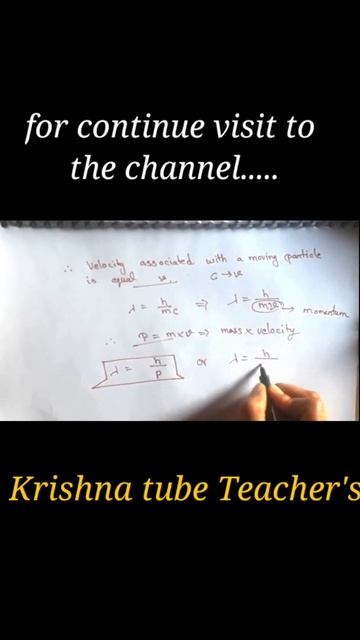 for continue visit to
the channel.....
∴ Velocity associated with a moving particle
is equal v. C → v
λ = h/mc ⇒ λ = h/mv → momentum
∴ P = m×v ⇒ mass × velocity
λ = h/P or λ = h
Krishna tube Teacher's